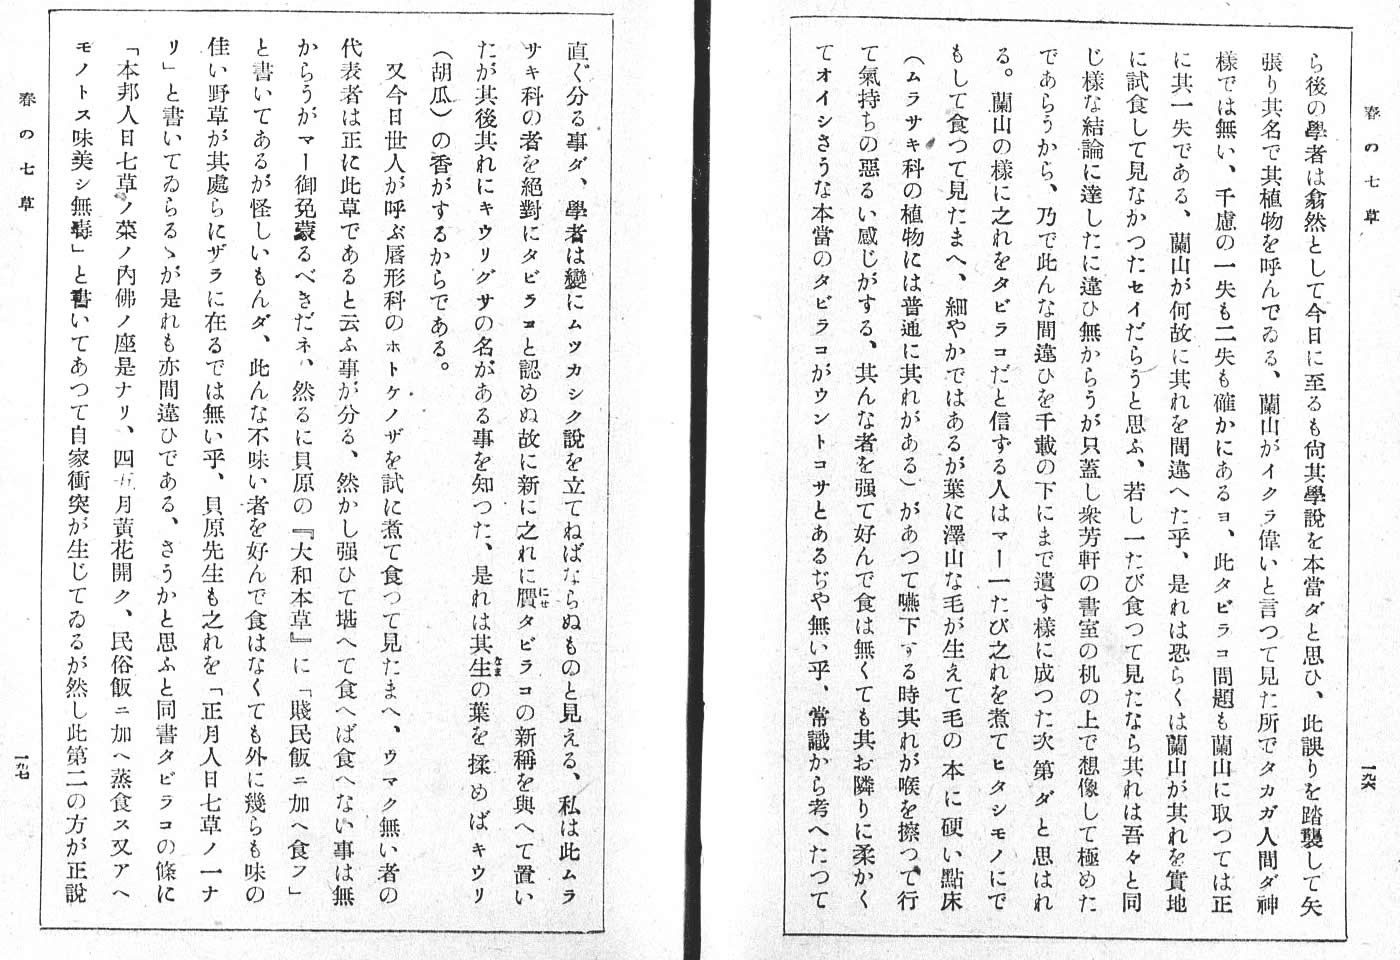 春の七草
ら後の學者は翕然として今日に至るも尙其學說を本當ダと思ひ、此誤りを踏襲して矢
張り其名で其植物を呼んでゐる、蘭山がイクラ偉いと言つて見た所でタカガ人間ダ神
樣では無い、千慮の一失も二失も確かにあるヨ、此タビラコ問題も蘭山に取つては正
に其一失である、蘭山が何故に其れを間違へた乎、是れは恐らくは蘭山が其れを實地
に試食して見なかつたセイだらうと思ふ、若し一たび食つて見たなら其れは吾々と同
じ樣な結論に達したに違ひ無からうが只蓋し衆芳軒の書室の机の上で想像して極めた
であらうから、乃で此んな間違ひを千載の下にまで遺す樣に成つた次第ダと思はれ
る。蘭山の樣に之れをタビラコだと信ずる人はマー一たび之れを煮てヒタシモノにで
もして食つて見たまへ、細やかではあるが葉に澤山な毛が生えて毛の本に硬い點床
（ムラサキ科の植物には普通に其れがある）があつて嚥下する時其れが喉を擦つて行
て氣持ちの惡るい感じがする、其んな者を强て好んで食は無くても其お隣りに柔かく
てオイシさうな本當のタビラコがウントコサとあるぢや無い乎、常識から考へたつて
一九六
春の七草
直ぐ分る事ダ、學者は變にムツカシク說を立てねばならぬものと見える、私は此ムラ
サキ科の者を絕對にタビラコと認めぬ故に新に之れに贋タビラコの新稱を與へて置い
にせ
たが其後其れにキウリグサの名がある事を知つた、是れは其生の葉を揉めばキウリ
なま
（胡瓜）の香がするからである。
又今日世人が呼ぶ唇形科のホトケノザを試に煮て食つて見たまへ、ウマク無い者の
代表者は正に此草であると云ふ事が分る、然かし强ひて堪へて食へば食へない事は無
からうがマー御免蒙るべきだネ、然るに貝原の『大和本草』に「賤民飯ニ加ヘ食フ」
と書いてあるが怪しいもんダ、此んな不味い者を好んで食はなくても外に幾らも味の
佳い野草が其處らにザラに在るでは無い乎、貝原先生も之れを「正月人日七草ノ一ナ
リ」と書いてゐらるゝが是れも亦間違ひである、さうかと思ふと同書タビラコの條に
「本邦人日七草ノ菜ノ內佛ノ座是ナリ、四五月黃花開ク、民俗飯ニ加ヘ蒸食ス又アヘ
モノトス味美シ無毒」と書いてあつて自家衝突が生じてゐるが然し此第二の方が正說
一九七